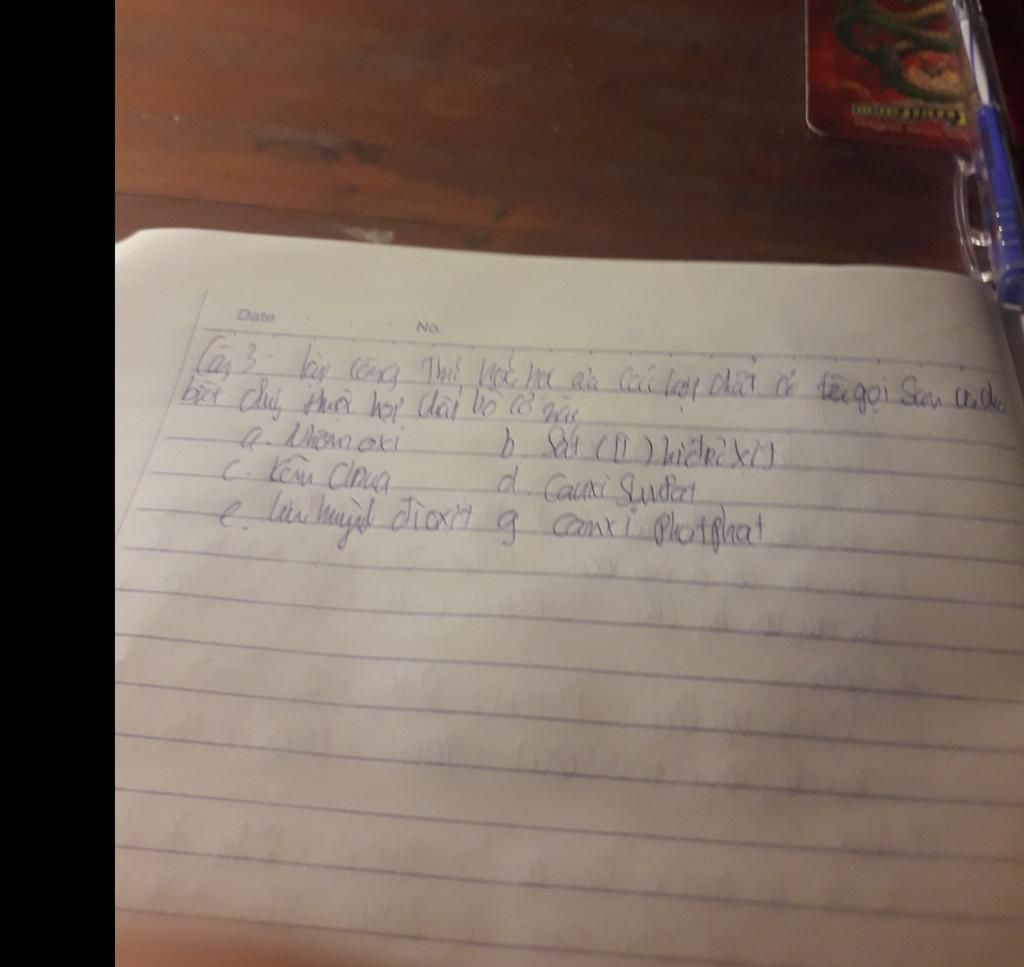 Date No.
Câu 3: lập công thức hóa học của các hợp chất có tên gọi sau và cho
biết chúng thuộc hợp chất vô cơ nào
a. Nhôm oxi b. Sắt (II) hiđrôxit
c. Kẽm clorua d. Canxi sunfat
e. lưu huỳnh đioxit g canxi photphat